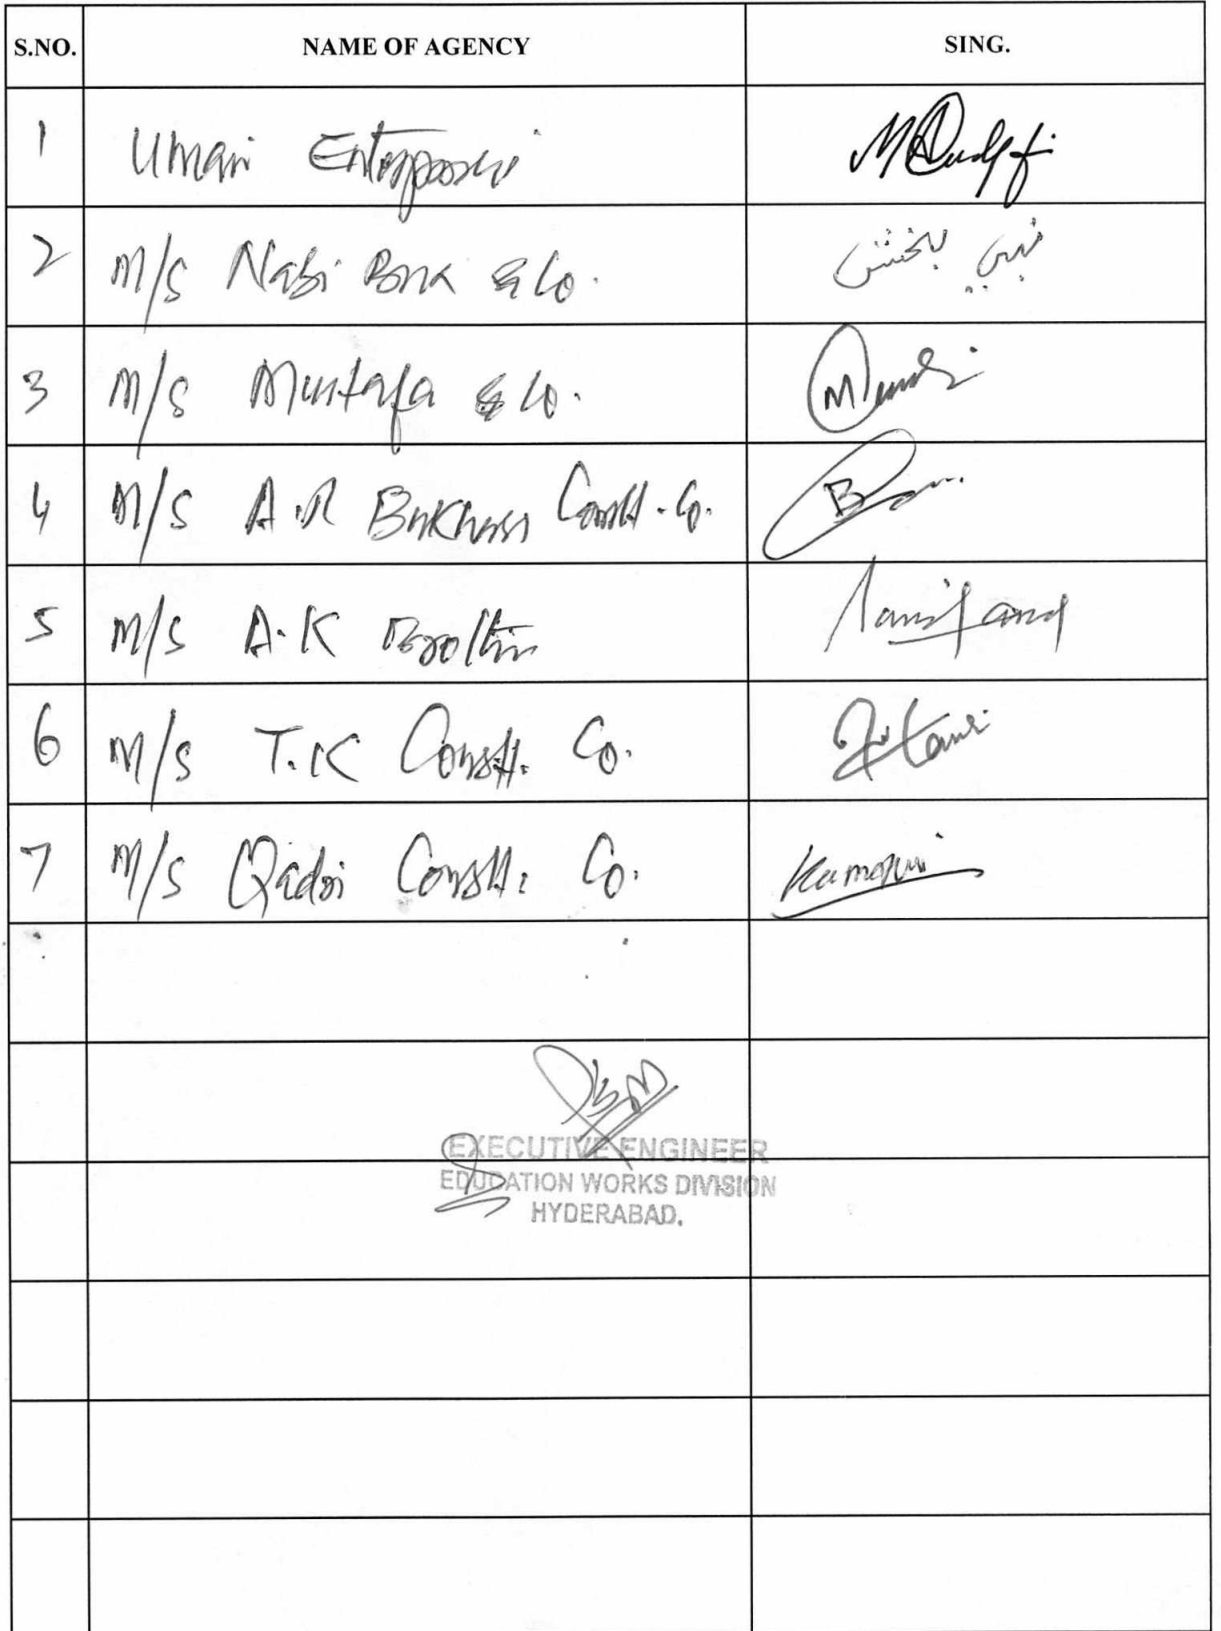 S.NO. NAME OF AGENCY SING.
1 Umair Enterprises
2 M/S Nabi Bux & Co. نبي بخش
3 M/S Mustafa & Co.
4 M/S A.R Bukhari Constt. Co.
5 M/S A.K Brothers
6 M/S T.K Constt. Co.
7 M/S Qadri Constt. Co.
EXECUTIVE ENGINEER
EDUCATION WORKS DIVISION
HYDERABAD.